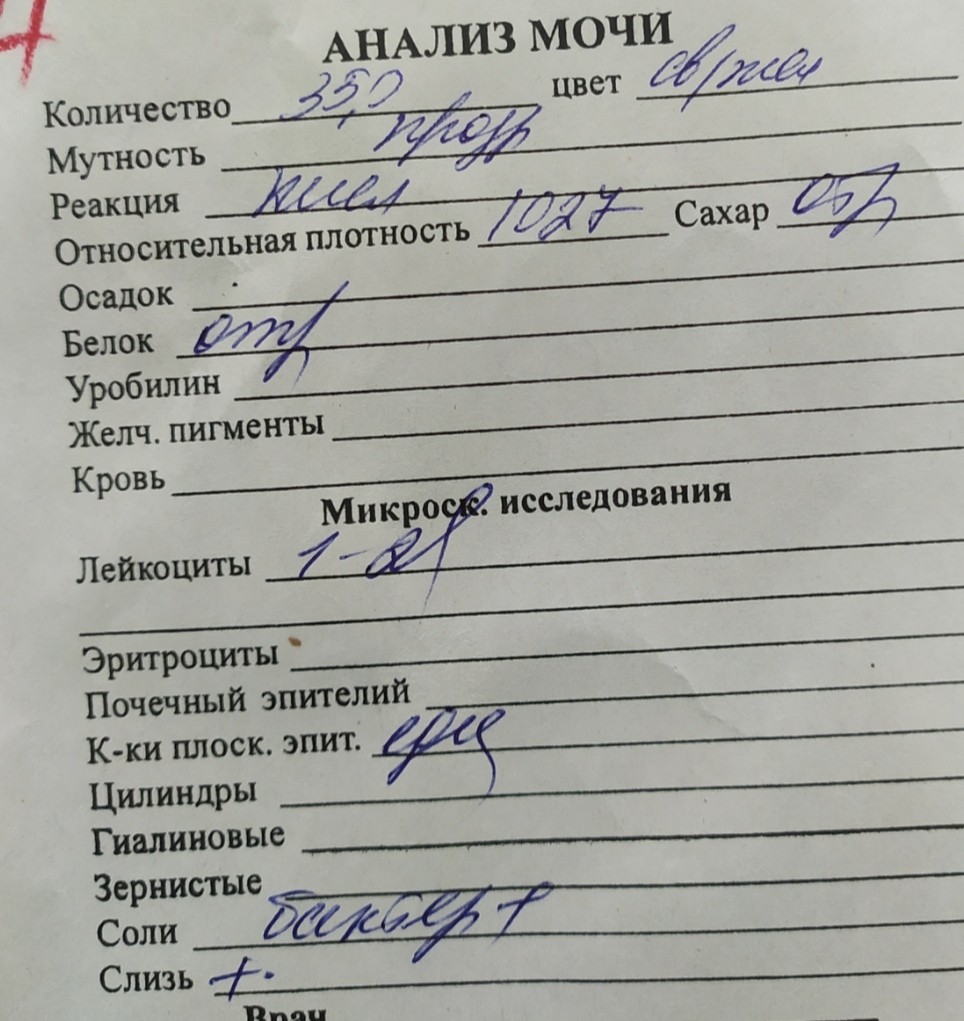 АНАЛИЗ МОЧИ
Количество 35,0 цвет св/жел
Мутность прозр
Реакция кисл
Относительная плотность 1027 Сахар отр
Осадок
Белок отр
Уробилин
Желч. пигменты
Кровь
Микроск. исследования
Лейкоциты 1-2
Эритроциты
Почечный эпителий
К-ки плоск. эпит. ед
Цилиндры
Гиалиновые
Зернистые
Соли бактер +
Слизь +.
Врач